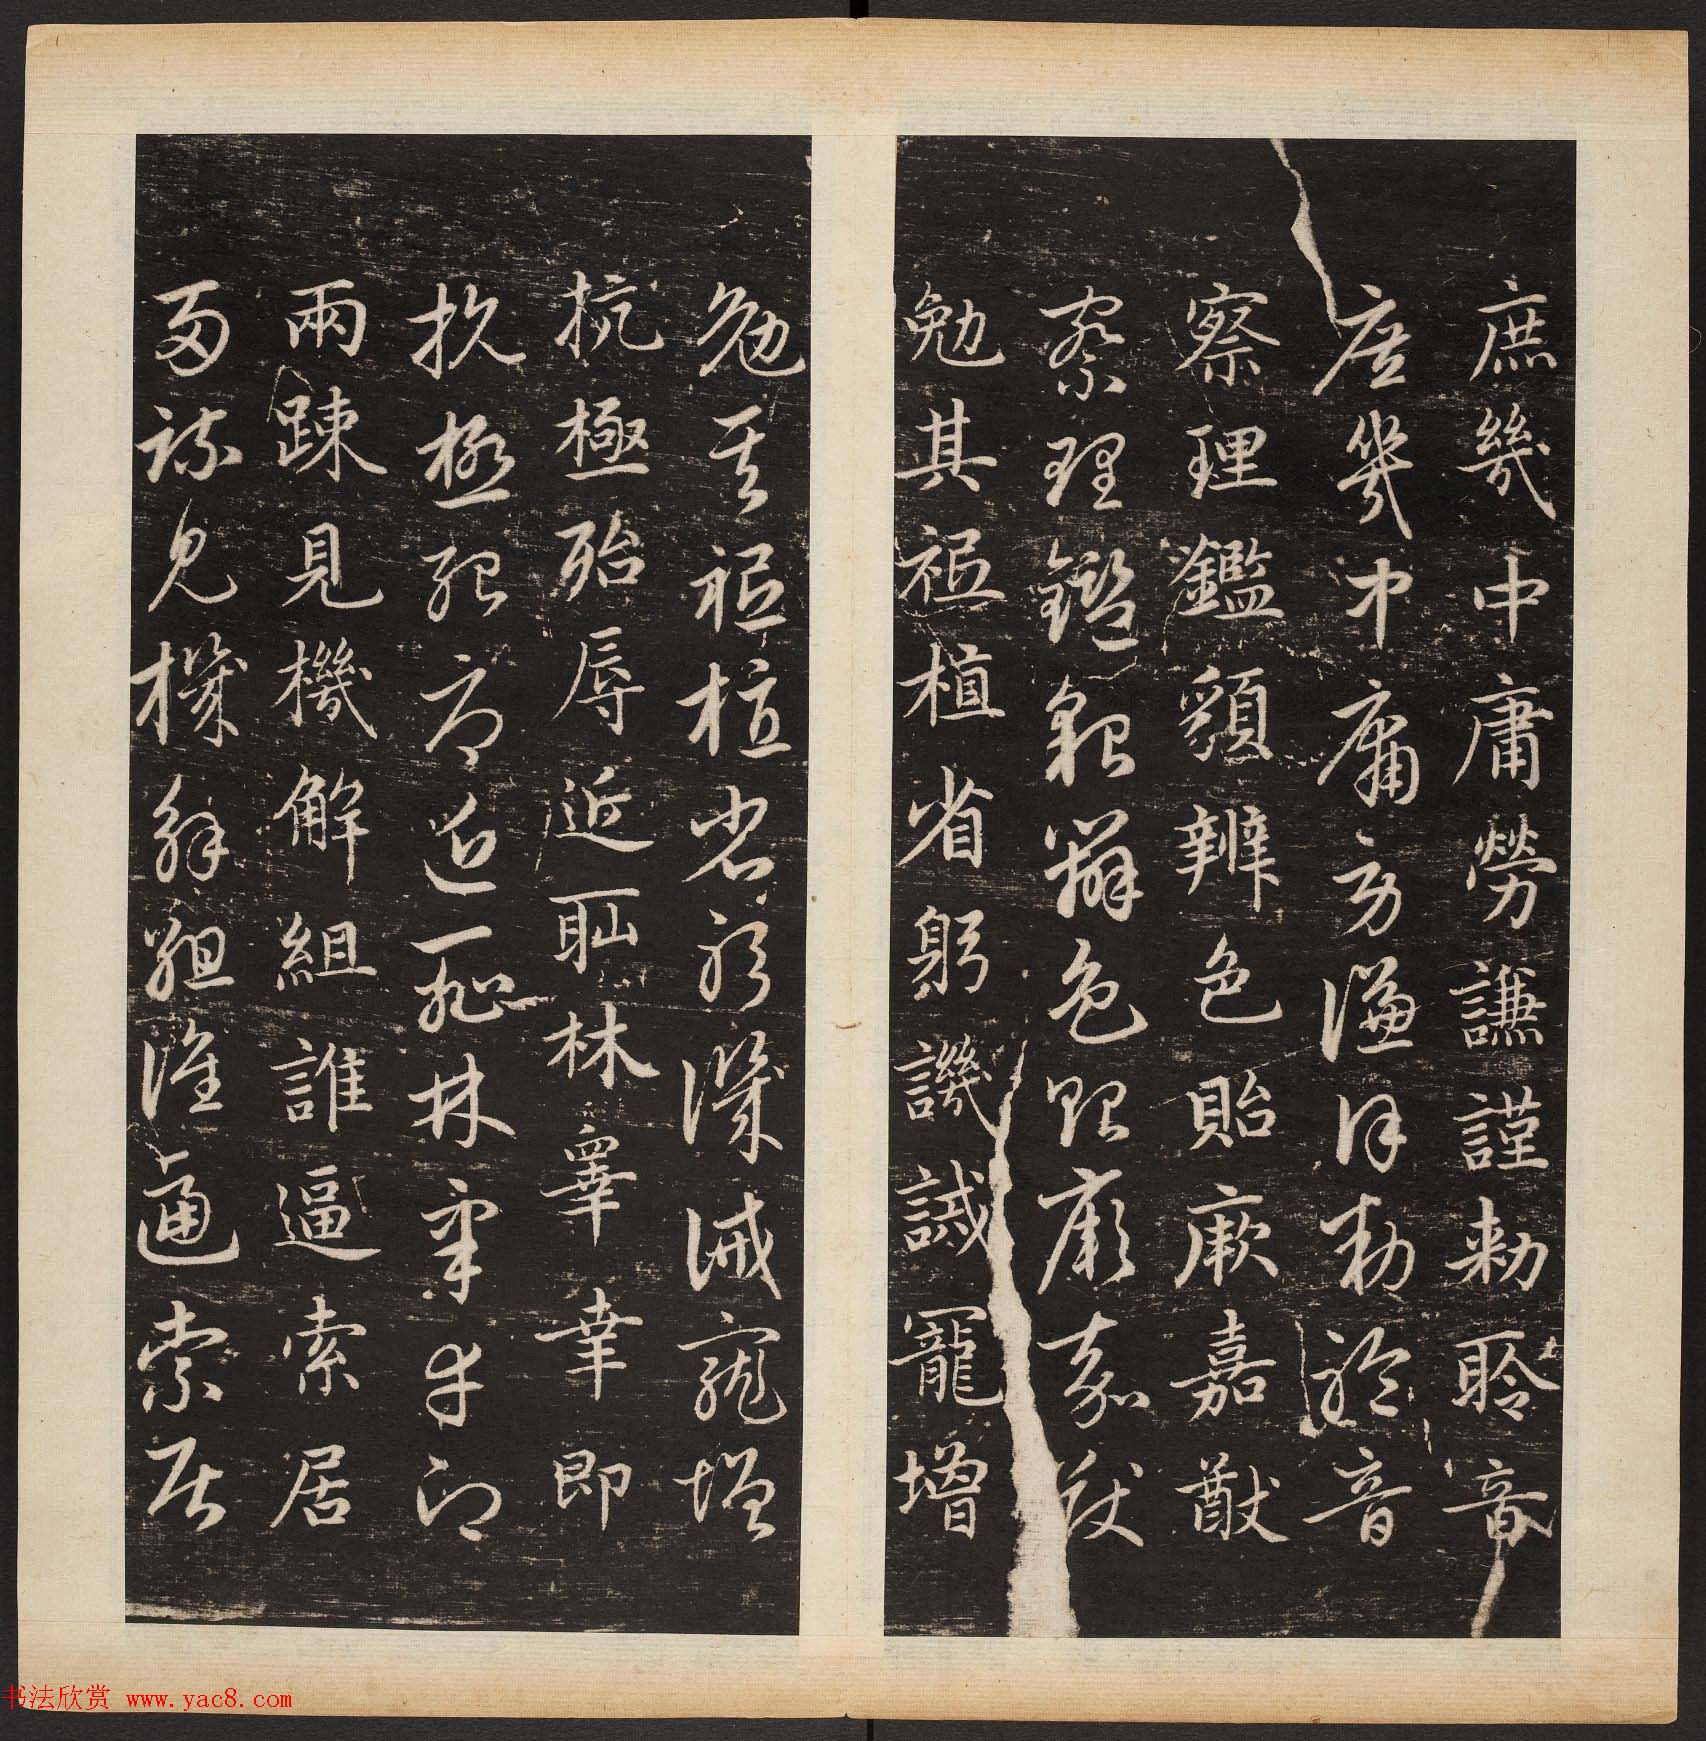 庶幾中庸勞謙謹勅聆音
庶幾中庸勞謙謹勅聆音
察理鑑䫉辨色貽厥嘉猷
察理鑑貌辨色貽厥嘉猷
勉其祗植省躬譏誡寵增
勉其祗植省躬譏誡寵增
抗極殆辱近耻林睾幸即
抗極殆辱近耻林皋幸即
兩踈見機解組誰逼索居
兩疏見機解組誰逼索居
书法欣赏 www.yac8.com